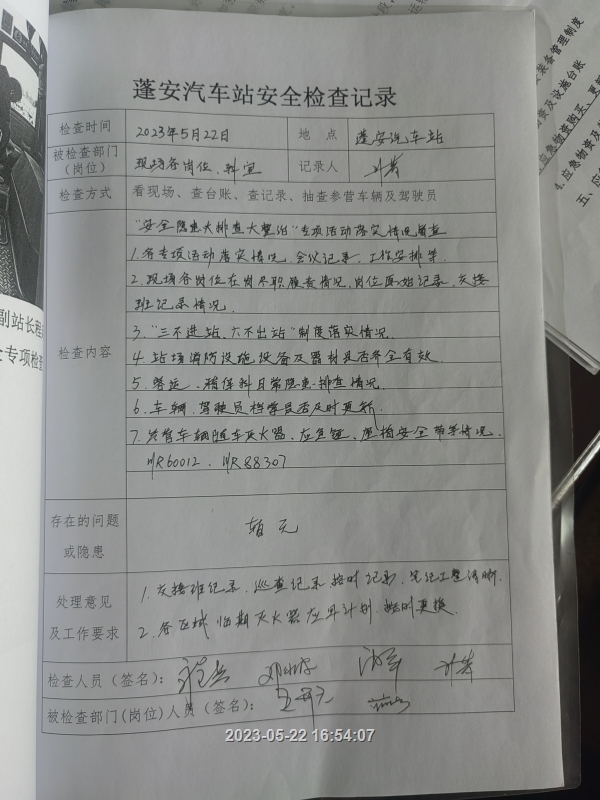 蓬安汽车站安全检查记录
检查时间 2023年5月22日 地 点 蓬安汽车站
被检查部门（岗位） 现场各岗位、科室 记录人
检查方式 看现场、查台账、查记录、抽查参营车辆及驾驶员
检查内容
"安全隐患大排查大整治"专项活动落实情况督查
1.各专项活动落实情况，会议记录、工作安排等。
2.现场各岗位在岗尽职履责情况，岗位原始记录，交接
班记录情况。
3."三不进站、六不出站"制度落实情况。
4.站场消防设施设备及器材是否齐全有效
5.客运、稽保科日常隐患排查情况。
6.车辆、驾驶员档案是否及时更新
7.参营车辆随车灭火器、应急锤、座椅安全带等情况。
川R60012、川R88307
存在的问题或隐患 暂无
处理意见及工作要求
1.交接班记录、巡查记录按时记录，字迹工整清晰。
2.各区域临期灭火器应早计划，按时更换。
检查人员（签名）：
被检查部门(岗位)人员（签名）：
2023-05-22 16:54:07
副站长程
全专项检查
装备管理制度
资及设施台账
应急物资购买、更新
4.应急物
五、应